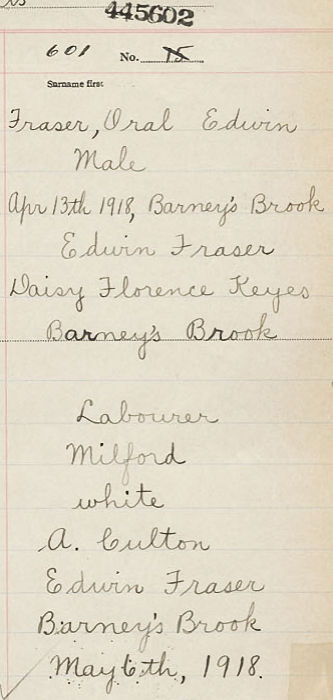 445602
601 No. 75
Surname first
Fraser, Oral Edwin
Male
Apr 13th 1918, Barney's Brook
Edwin Fraser
Daisy Florence Keyes
Barney's Brook
Labourer
Milford
white
A. Culton
Edwin Fraser
Barney's Brook
May 6th, 1918.